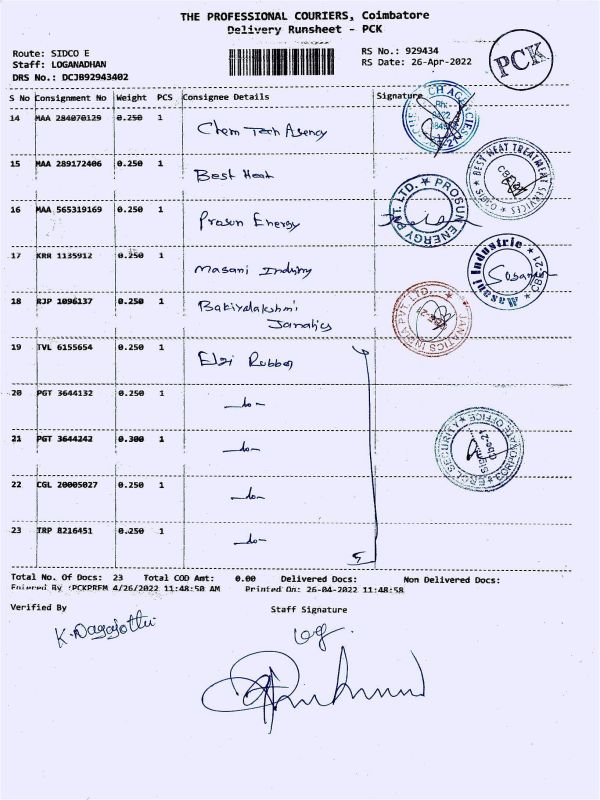 THE PROFESSIONAL COURIERS, Coimbatore
Delivery Runsheet - PCK
Route: SIDCO E
Staff: LOGANADHAN
DRS No.: DCJB92943402
RS No.: 929434
RS Date: 26-Apr-2022
PCK
S No Consignment No Weight PCS Consignee Details Signature
14 MAA 284070129 0.250 1 Chem Tech Agency
15 MAA 289172406 0.250 1 Best Heat
BEST HEAT TREATMENT SERVICES
16 MAA 565319169 0.250 1 Prosun Energy
PROSUN ENERGY PVT. LTD.
17 KRR 1135912 0.250 1 Masani Industry
Masani Industrie CBE-21
18 RJP 1096137 0.250 1
Janatics
JANATICS INDIA PVT. LTD.
19 TVL 6155654 0.250 1 Elgi Rubber
20 PGT 3644132 0.250 1 -do-
21 PGT 3644242 0.300 1 -do-
SECURITY CORPORATE OFFICE
22 CGL 20005027 0.250 1 -do-
23 TRP 8216451 0.250 1 -do-
Total No. Of Docs: 23 Total COD Amt: 0.00 Delivered Docs: Non Delivered Docs:
Entered By :PCKPREM 4/26/2022 11:48:50 AM Printed On: 26-04-2022 11:48:58
Verified By Staff Signature